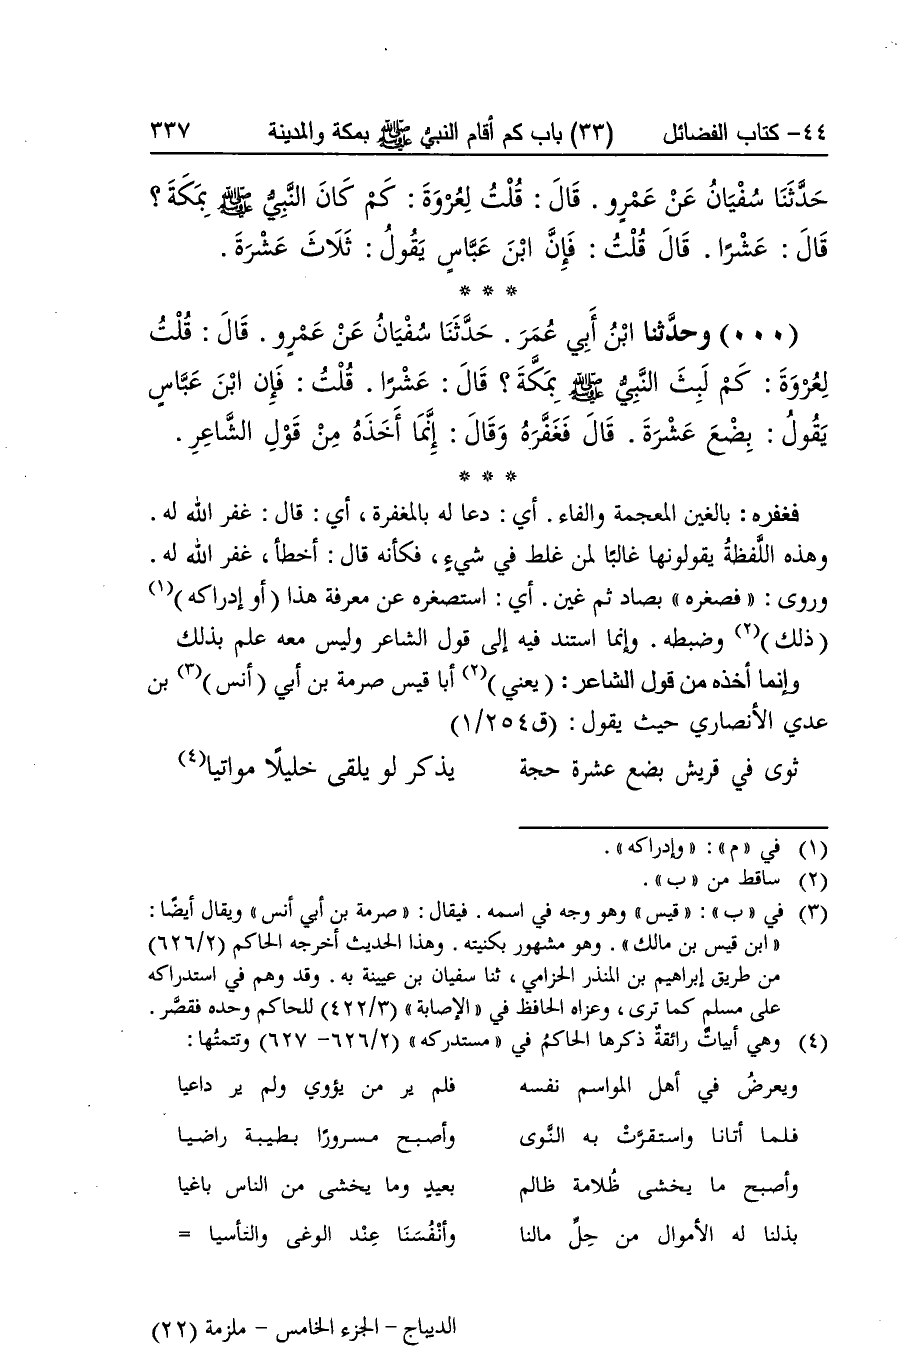 ٤٤- كتاب الفضائل (٣٣) باب كم أقام النبيُّ ﷺ بمكة والمدينة ٣٣٧
حَدَّثَنَا سُفْيَانُ عَنْ عَمْرٍو . قَالَ : قُلْتُ لِعُرْوَةَ : كَمْ كَانَ النَّبِيُّ ﷺ بِمَكَةَ ؟
قَالَ : عَشْرًا . قَالَ قُلْتُ : فَإِنَّ ابْنَ عَبَّاسٍ يَقُولُ : ثَلَاثَ عَشْرَةَ .
* * *
(٠٠٠) وحدَّثنا ابْنُ أَبِي عُمَرَ . حَدَّثَنَا سُفْيَانُ عَنْ عَمْرٍو . قَالَ : قُلْتُ
لِعُرْوَةَ : كَمْ لَبِثَ النَّبِيُّ ﷺ بِمَكَّةَ ؟ قَالَ : عَشْرًا . قُلْتُ : فَإِن ابْنَ عَبَّاسٍ
يَقُولُ : بِضْعَ عَشْرَةَ . قَالَ فَغَفَّرَهُ وَقَالَ : إِنَّمَا أَخَذَهُ مِنْ قَوْلِ الشَّاعِرِ .
* * *
فغفره : بالغين المعجمة والفاء . أي : دعا له بالمغفرة ، أي : قال : غفر الله له .
وهذه اللَّفظةُ يقولونها غالبًا لمن غلط في شيءٍ ، فكأنه قال : أخطأ ، غفر الله له .
وروى : « فصغره » بصاد ثم غين . أي : استصغره عن معرفة هذا ( أو إدراكه )(١)
( ذلك )(٢) وضبطه . وإنما استند فيه إلى قول الشاعر وليس معه علم بذلك
وإنما أخذه من قول الشاعر : ( يعني )(٢) أبا قيس صرمة بن أبي ( أنس )(٣) بن
عدي الأنصاري حيث يقول : (ق١/٢٥٤)
ثوى في قريش بضع عشرة حجة يذكر لو يلقى خليلًا مواتيا(٤)
(١) في «م» : «وإدراكه» .
(٢) ساقط من «ب» .
(٣) في «ب» : «قيس» وهو وجه في اسمه . فيقال : «صرمة بن أبي أنس» ويقال أيضًا :
«ابن قيس بن مالك» . وهو مشهور بكنيته . وهذا الحديث أخرجه الحاكم (٦٢٦/٢)
من طريق إبراهيم بن المنذر الحزامي ، ثنا سفيان بن عيينة به . وقد وهم في استدراكه
على مسلم كما ترى ، وعزاه الحافظ في «الإصابة» (٤٢٢/٣) للحاكم وحده فقصَّر .
(٤) وهي أبياتٌ رائقةٌ ذكرها الحاكمُ في «مستدركه» (٦٢٦/٢- ٦٢٧) وتتمتُها :
ويعرضُ في أهل المواسم نفسه فلم ير من يؤوي ولم ير داعيا
فلما أتانا واستقرَّتْ به النَّوى وأصبح مسرورًا بطيبة راضيا
وأصبح ما يخشى ظُلامة ظالم بعيدٍ وما يخشى من الناس باغيا
بذلنا له الأموال من حِلِّ مالنا وأنْفُسَنَا عِنْد الوغى والتأسيا =
الديباج - الجزء الخامس - ملزمة (٢٢)